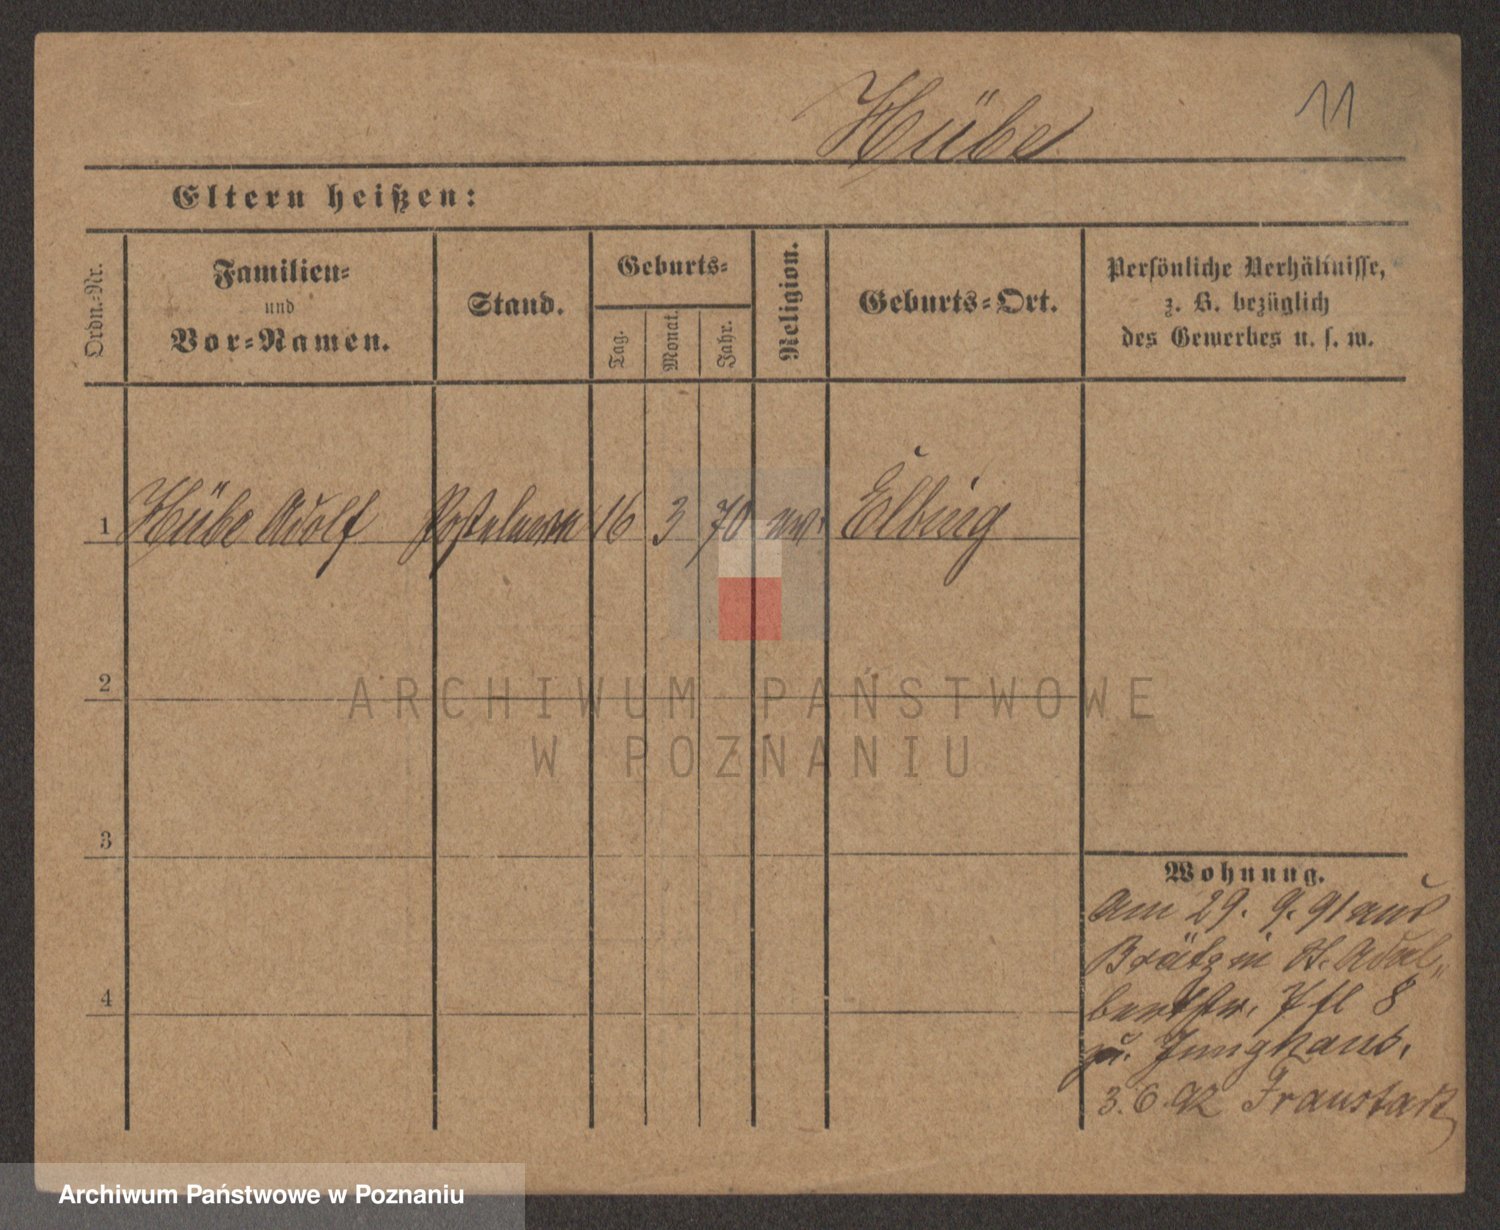 Hübe 11
Eltern heißen:
Ordn.-Nr. Familien- und Vor-Namen. Stand. Geburts- Tag. Monat. Jahr. Religion. Geburts-Ort. Persönliche Verhältnisse, z. B. bezüglich des Gewerbes u. s. w.
1 Hübe Adolf 16 3 70 ev. Elbing
2
ARCHIWUM PAŃSTWOWE
W POZNANIU
3
Wohnung.
Am 29. 9. 91 aus
Brätz in St. Adal„
bertstr. 7 fl 8
zu. Junghans.
3. 6. 92 Fraustadt
4
Archiwum Państwowe w Poznaniu